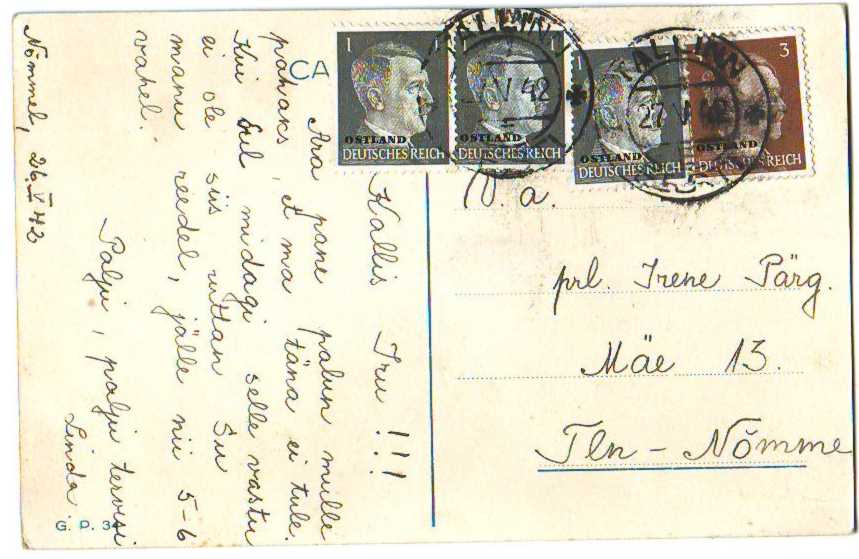 Nõmmel, 26.V 42
Kallis Iru!!!
Ära pane palun mulle
pahaks, et ma täna ei tule.
Kui Sul midagi selle vastu
ei ole siis ruttan Su
manu reedel, jälle nii 5-6
vahel.
Palju, palju tervisi
Linda.
G. P. 34
CA
1
OSTLAND
DEUTSCHES REICH
1
OSTLAND
DEUTSCHES REICH
1
OSTLAND
DEUTSCHES REICH
3
OSTLAND
DEUTSCHES REICH
TALLINN
V 42
TALLINN
27 V 42
V. a.
prl. Irene Pärg.
Mäe 13.
Tln - Nõmme